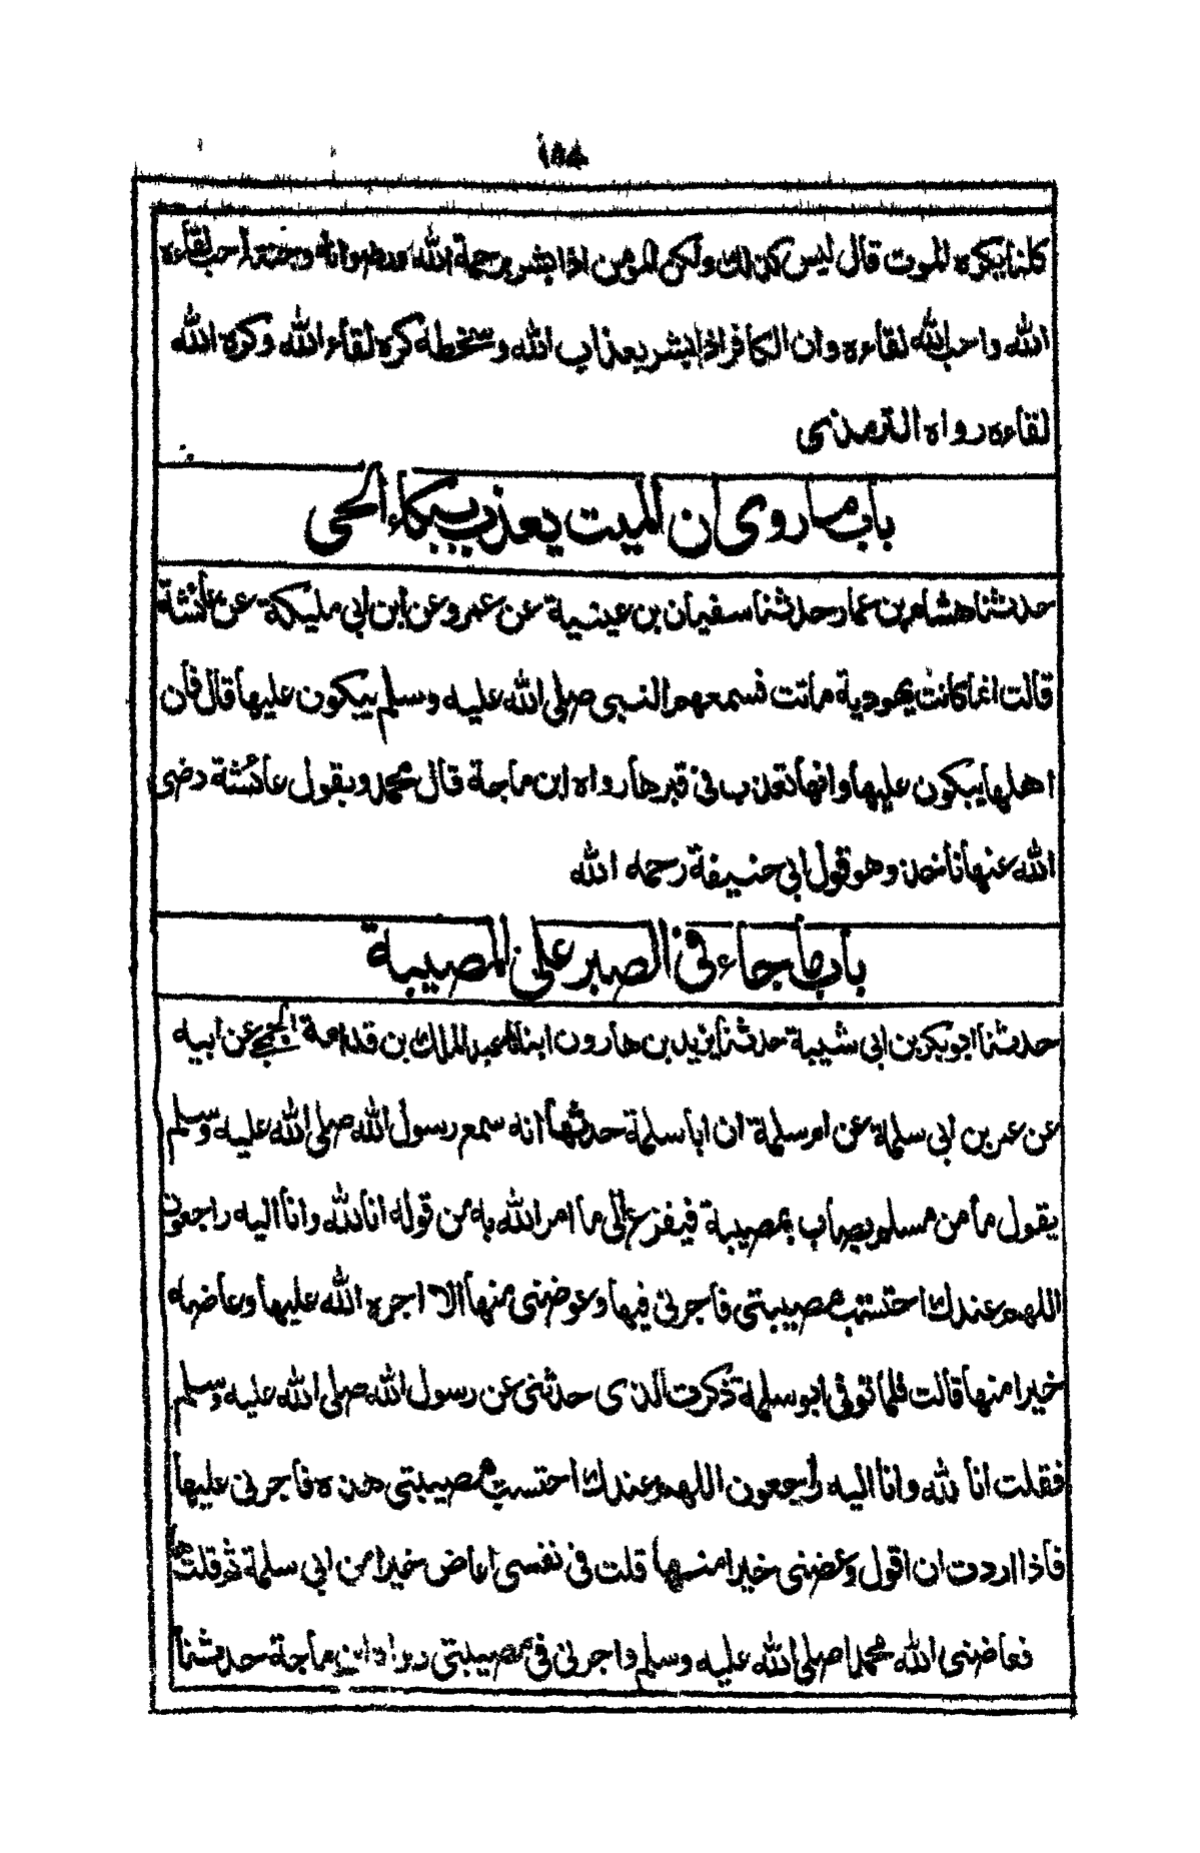 كلنا يكره الموت قال ليس كذلك ولكن المؤمن اذا بشر برحمة الله ورضوانه وجنته احب لقاءه
الله واحب الله لقاءه وان الكافر اذا بشر بعذاب الله وسخطه كره لقاء الله وكره الله
لقاءه رواه الترمذى
باب ما روى ان الميت يعذب ببكاء الحى
حدثنا هشام بن عمار حدثنا سفيان بن عيينة عن عمرو عن ابن ابى مليكة عن عائشة
قالت انما كانت يهودية ماتت فسمعهم النبى صلى الله عليه وسلم يبكون عليها قال فان
اهلها يبكون عليها وانها تعذب فى قبرها رواه ابن ماجة قال محمد وبقول عائشة رضى
الله عنها ناخذ وهو قول ابى حنيفة رحمه الله
باب ما جاء فى الصبر على المصيبة
حدثنا ابو بكر بن ابى شيبة حدثنا يزيد بن هارون انبانا عبد الملك بن قدامة الجمحى عن ابيه
عن عمر بن ابى سلمة عن ام سلمة ان ابا سلمة حدثها انه سمع رسول الله صلى الله عليه وسلم
يقول ما من مسلم يصاب بمصيبة فيفزع الى ما امر الله به من قوله انا لله وانا اليه راجعون
اللهم عندك احتسبت مصيبتى فاجرنى فيها وعوضنى منها الا اجره الله عليها وعاضه
خيرا منها قالت فلما توفى ابو سلمة ذكرت الذى حدثنى عن رسول الله صلى الله عليه وسلم
فقلت انا لله وانا اليه راجعون اللهم عندك احتسبت مصيبتى هذه فاجرنى عليها
فاذا اردت ان اقول وعضنى خيرا منها قلت فى نفسى اعاض خيرا من ابى سلمة ثم قلتها
فعاضنى الله محمدا صلى الله عليه وسلم واجرنى فى مصيبتى رواه ابن ماجة حدثنا